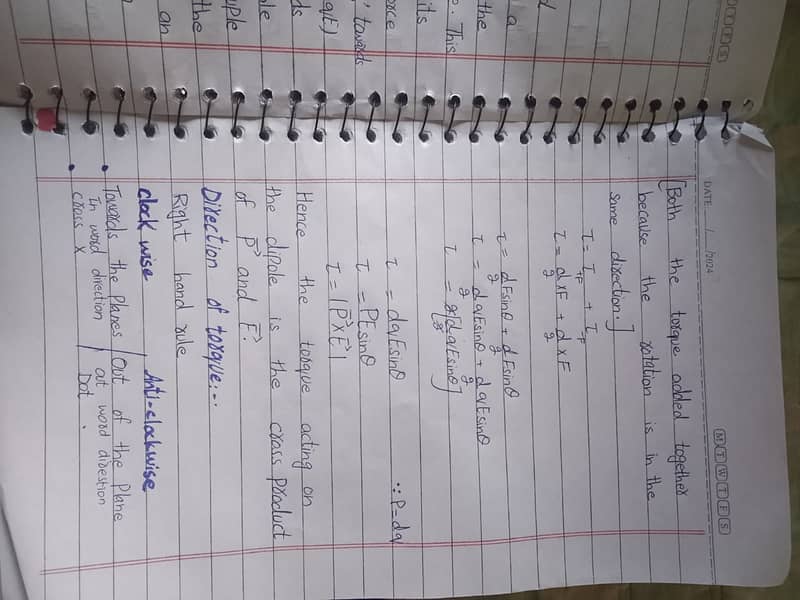 DATE: / /2024
M T W T F S
[Both the torque added together
because the rotation is in the
same direction.]
τ = τ+F + τ-F
τ = d/2 xF + d/2 xF
τ = d/2 Fsinθ + d/2 Fsinθ
τ = d/2 qEsinθ + d/2 qEsinθ
τ = 2[d/2 qEsinθ]
τ = dqEsinθ ∵ P=dq
τ = PEsinθ
τ = |P⃗ x E⃗|
Hence the torque acting on
the dipole is the cross product
of P⃗ and E⃗.
Direction of torque:-.
Right hand rule
clock wise / Anti-clockwise
• Towards the planes / Out of the Plane
In word direction / out word direstion
• cross x Dot .
d
a
the
. This
its
orce
' towards
qE)
ds
ole
uple
the
an